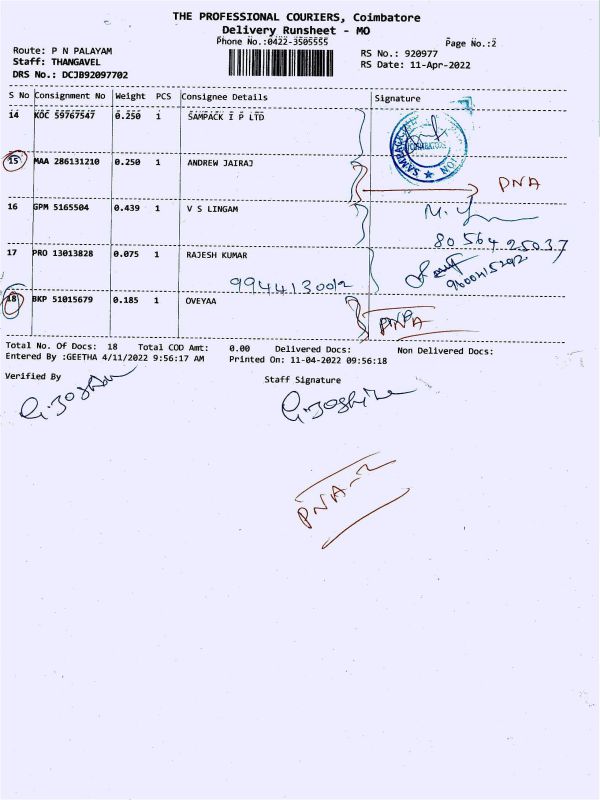 THE PROFESSIONAL COURIERS, Coimbatore
Delivery Runsheet - MO
Phone No.:0422-3505555
Page No.:2
Route: P N PALAYAM
RS No.: 920977
Staff: THANGAVEL
RS Date: 11-Apr-2022
DRS No.: DCJB92097702
S No Consignment No Weight PCS Consignee Details Signature
14 KOC 59767547 0.250 1 SAMPACK I P LTD
COIMBATORE
15 MAA 286131210 0.250 1 ANDREW JAIRAJ
PNA
16 GPM 5165504 0.439 1 V S LINGAM
80564 25037
17 PRO 13013828 0.075 1 RAJESH KUMAR
9944130012
9600415292
18 BKP 51015679 0.185 1 OVEYAA
PNA
Total No. Of Docs: 18 Total COD Amt: 0.00 Delivered Docs: Non Delivered Docs:
Entered By :GEETHA 4/11/2022 9:56:17 AM Printed On: 11-04-2022 09:56:18
Verified By Staff Signature
PNA-2